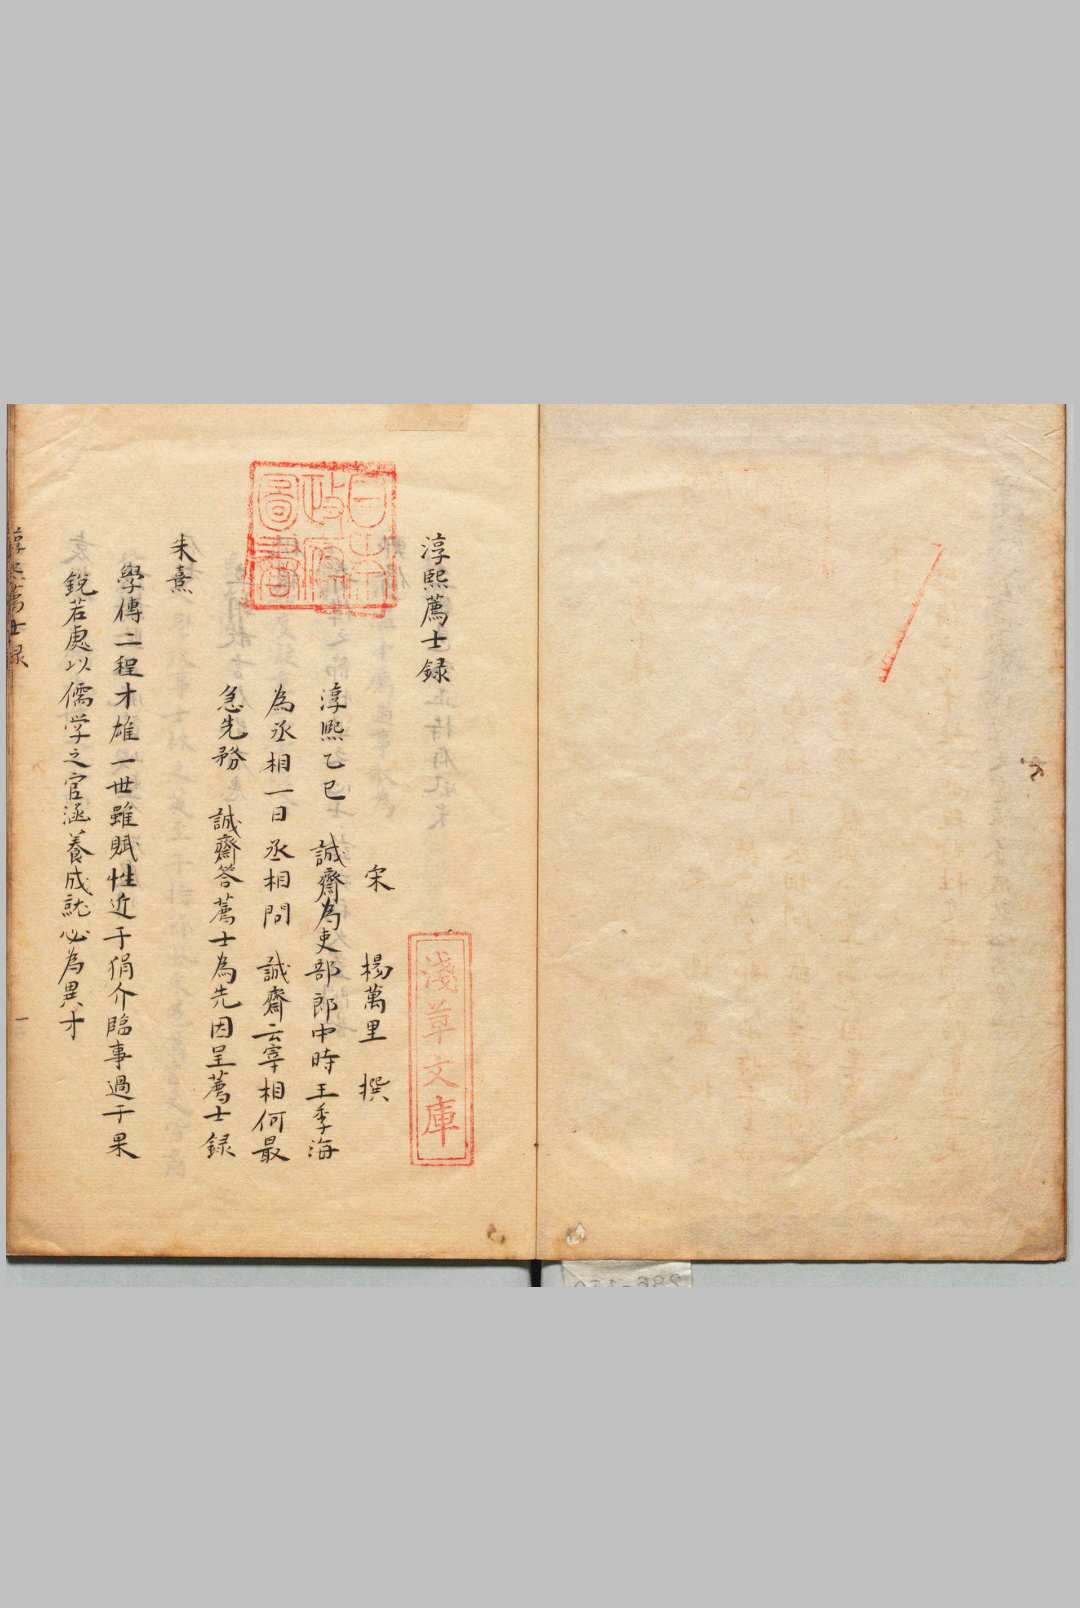 淳熙薦士録
宋 楊萬里 撰
淳熙乙巳 誠齋為吏部郎中時王季海
為丞相一日丞相問 誠齋云宰相何最
急先務 誠齋答薦士為先因呈薦士録
朱熹
學傳二程才雄一世雖賦性近于狷介臨事過于果
銳若處以儒学之官涵養成就必為異才
淳熙薦士録
一
日本
政府
圖書
淺草文庫